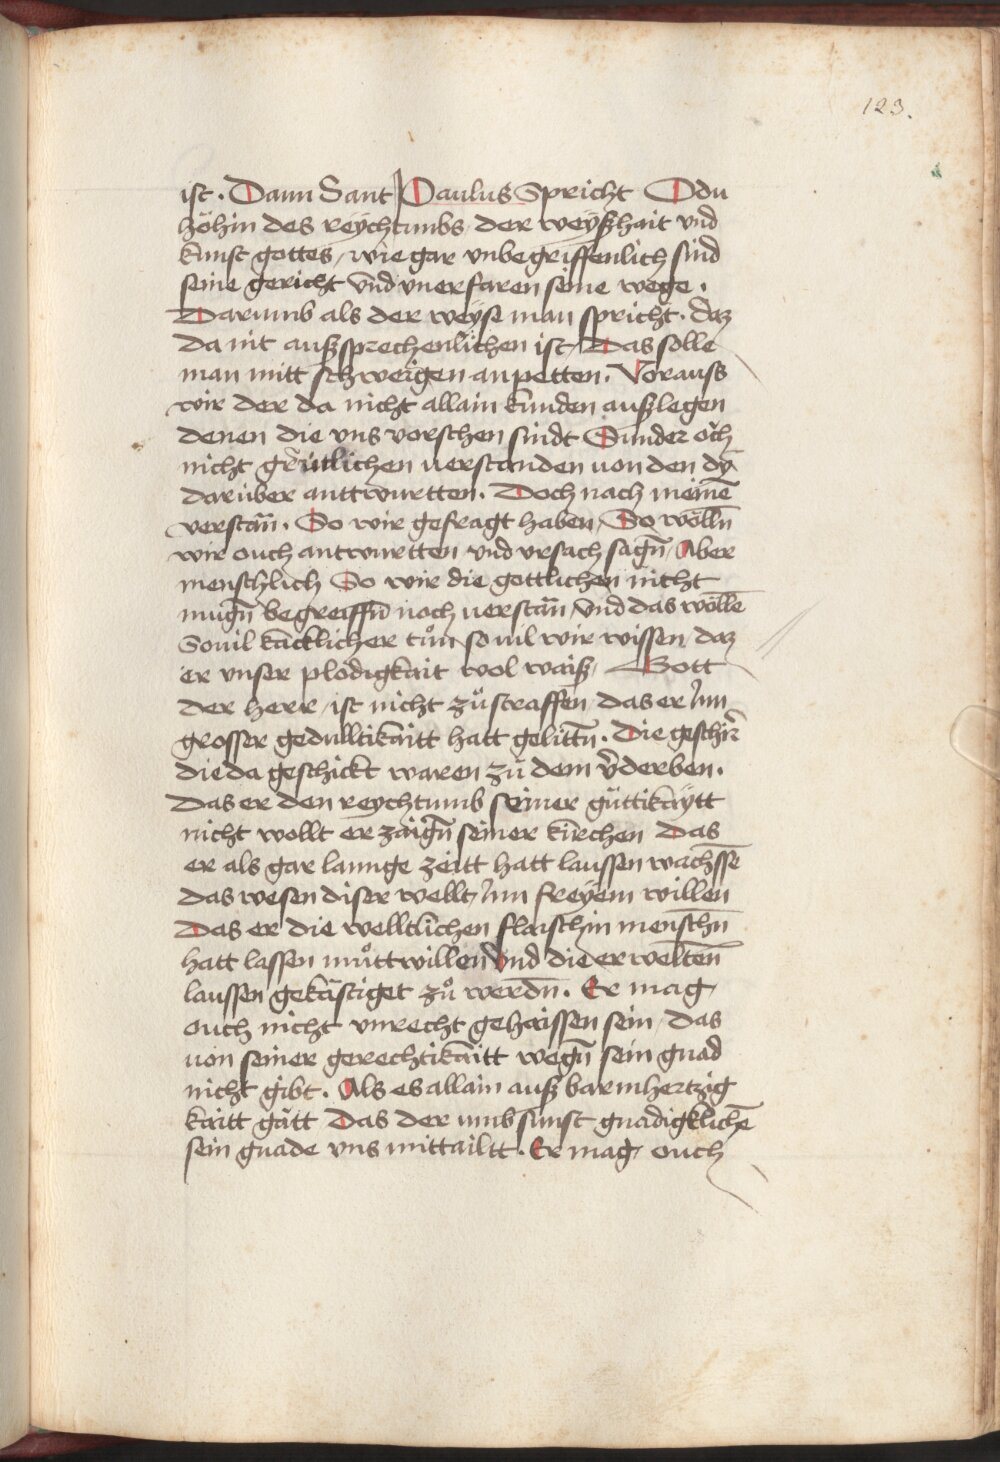 123.
ist. Dann Sant Paulus Spricht O du
höhin des reÿchtumbs, der weÿßhait vnd
kunst gottes, wie gar vnbegriffenlich sind
seine gericht vnd vnerfaren seine wege.
Darumb als der weÿse man spricht. daz
da nit außsprechenlichen ist, Das solle
man mitt schweigen anpetten. Vorauss
wir der da nicht allain kunden außlegen
denen die vns vorschen sindt Sunder och
nicht verstanden von den dÿ
darüber anttwurtten. Doch nach meinē
verstān. So wir gefragt haben, So wölln̄
wir ouch antwurtten vnd vrsach sagn̄, Aber
menschlich So wir die gottlichen nicht
mugn̄ begreiffn̄ noch verstān, vnd das wöllē
Souil käcklicher tůn so uil wir wissen daz
er vnser plödigkait wol waiß, Gott
der herr, ist nicht zů straffen, das er Inn
grosser gedulltikaitt hatt gelittn̄. Die geschir̄
die da geschickt waren zů dem v̄derben.
Das er den reychtumb seiner güttikaÿtt
nicht wollt er zaign̄ seiner kirchen Das
er als gar lannge zeitt hatt laussen wachssē
das wesen diser wellt, Inn freÿem willen
Das er die welltlichen flaischin menschn̄
hatt lassen můttwillen vnd die erwelten̄
laussen gekästiget zů werdn̄. Er mag
ouch nicht vnrecht gehaissen sein, das
von seiner gerechtikaitt wegn̄ sein gnad
nicht gibt. Als es allain auß barmhertzig
kaitt gätt Das der vmb sunst gnadigklichē
sein gnade vns mittailtt. Er mag ouch